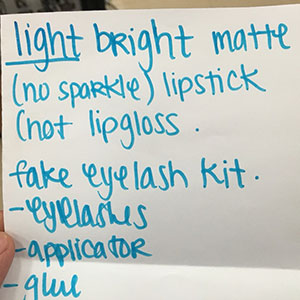 light bright matte
(no sparkle) lipstick
(not lipgloss.
fake eyelash kit.
-eyelashes
-applicator
-glue